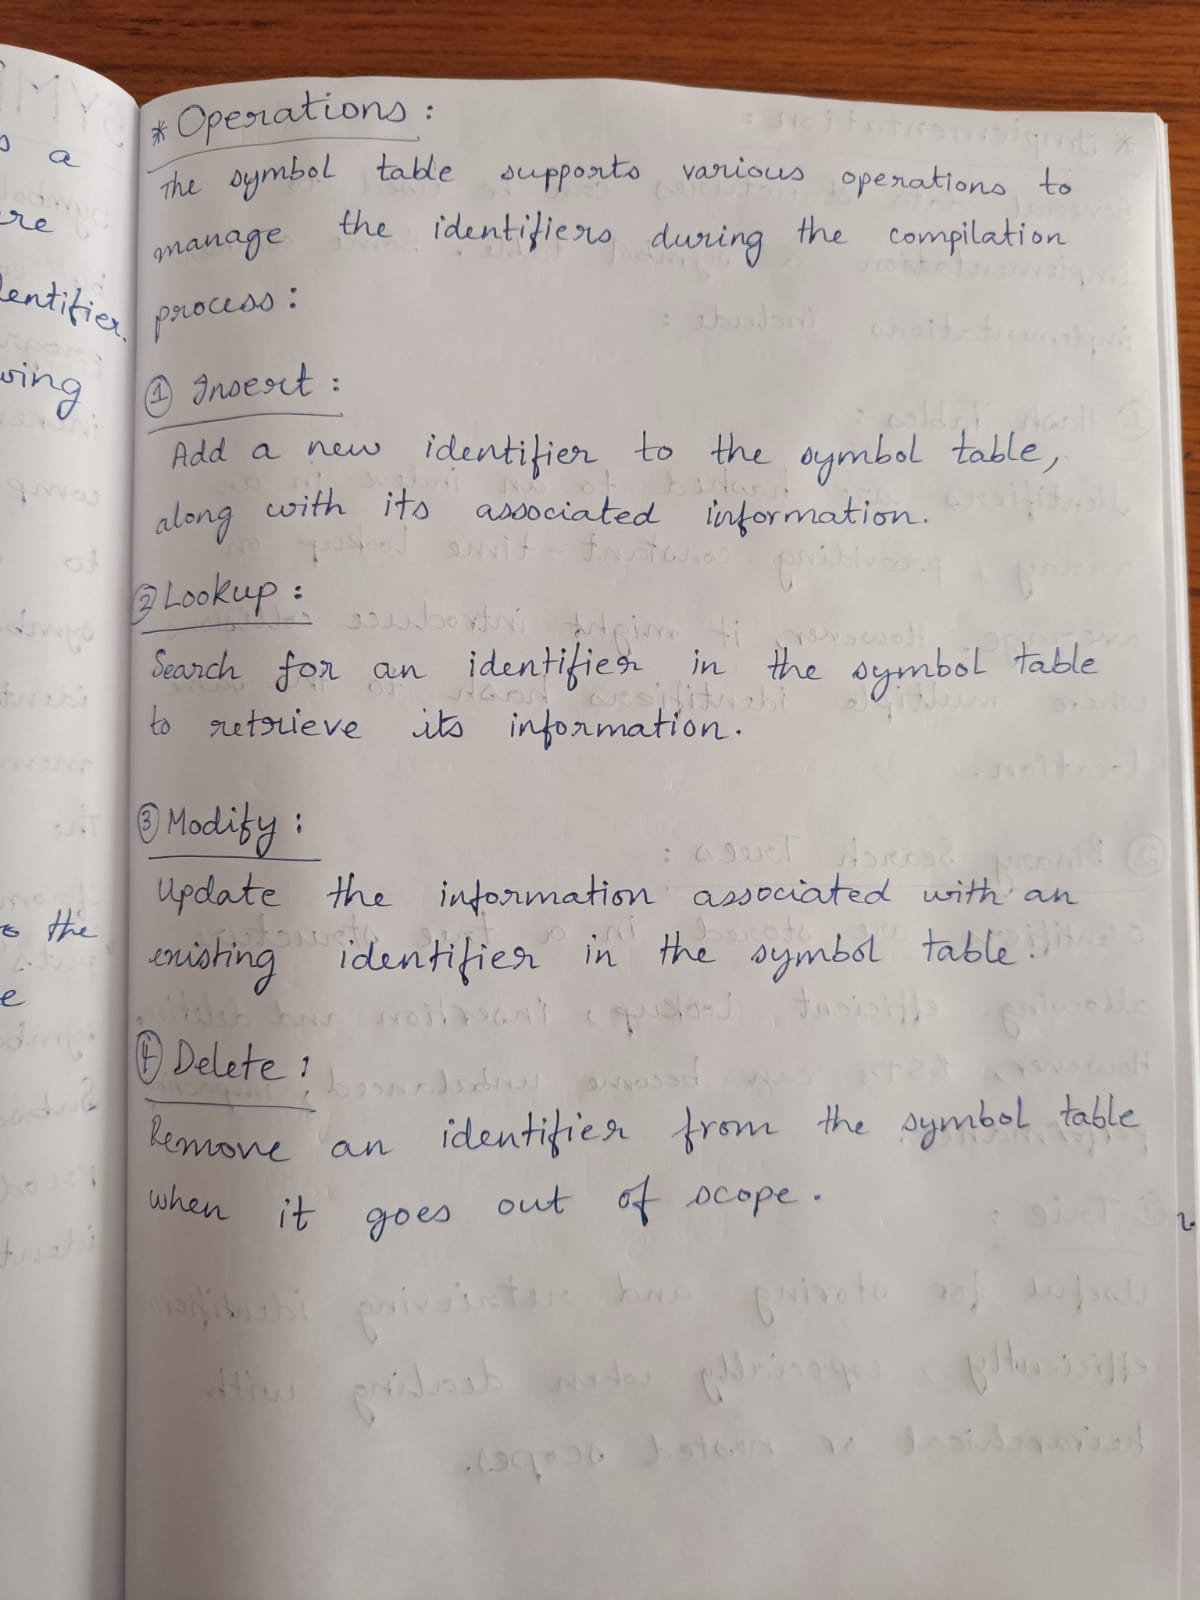 * Operations :
The symbol table supports various operations to
manage the identifiers during the compilation
process :
① Insert :
Add a new identifier to the symbol table,
along with its associated information.
② Lookup :
Search for an identifier in the symbol table
to retrieve its information.
③ Modify :
Update the information associated with an
existing identifier in the symbol table.
④ Delete :
Remove an identifier from the symbol table
when it goes out of scope.